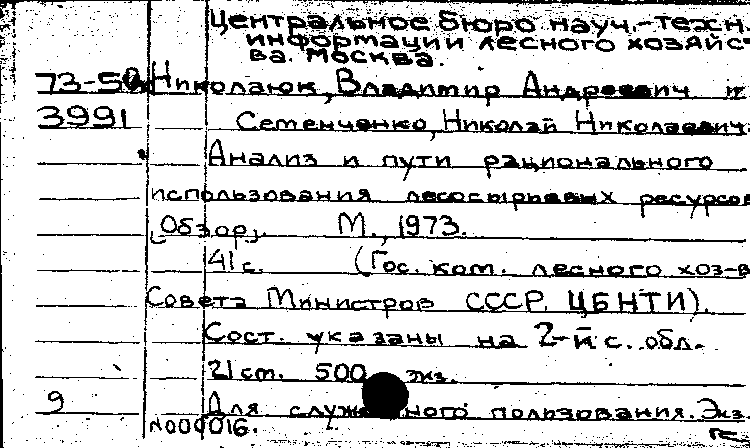 Центральное бюро науч.-техн.
информации лесного хозяйст
ва. Москва.
73-50 Николаюк, Владимир Андреевич и
3991 Семенченко, Николай Николаевич
Анализ и пути рационального
использования лесосырьевых ресурсов
(Обзор). М., 1973.
41 с. (Гос. ком. лесного хоз-в
Совета Министров СССР. ЦБНТИ).
Сост. указаны на 2-й с. обл.
21 cm. 500 экз.
9 Для служебного пользования. Экз.
№000016.